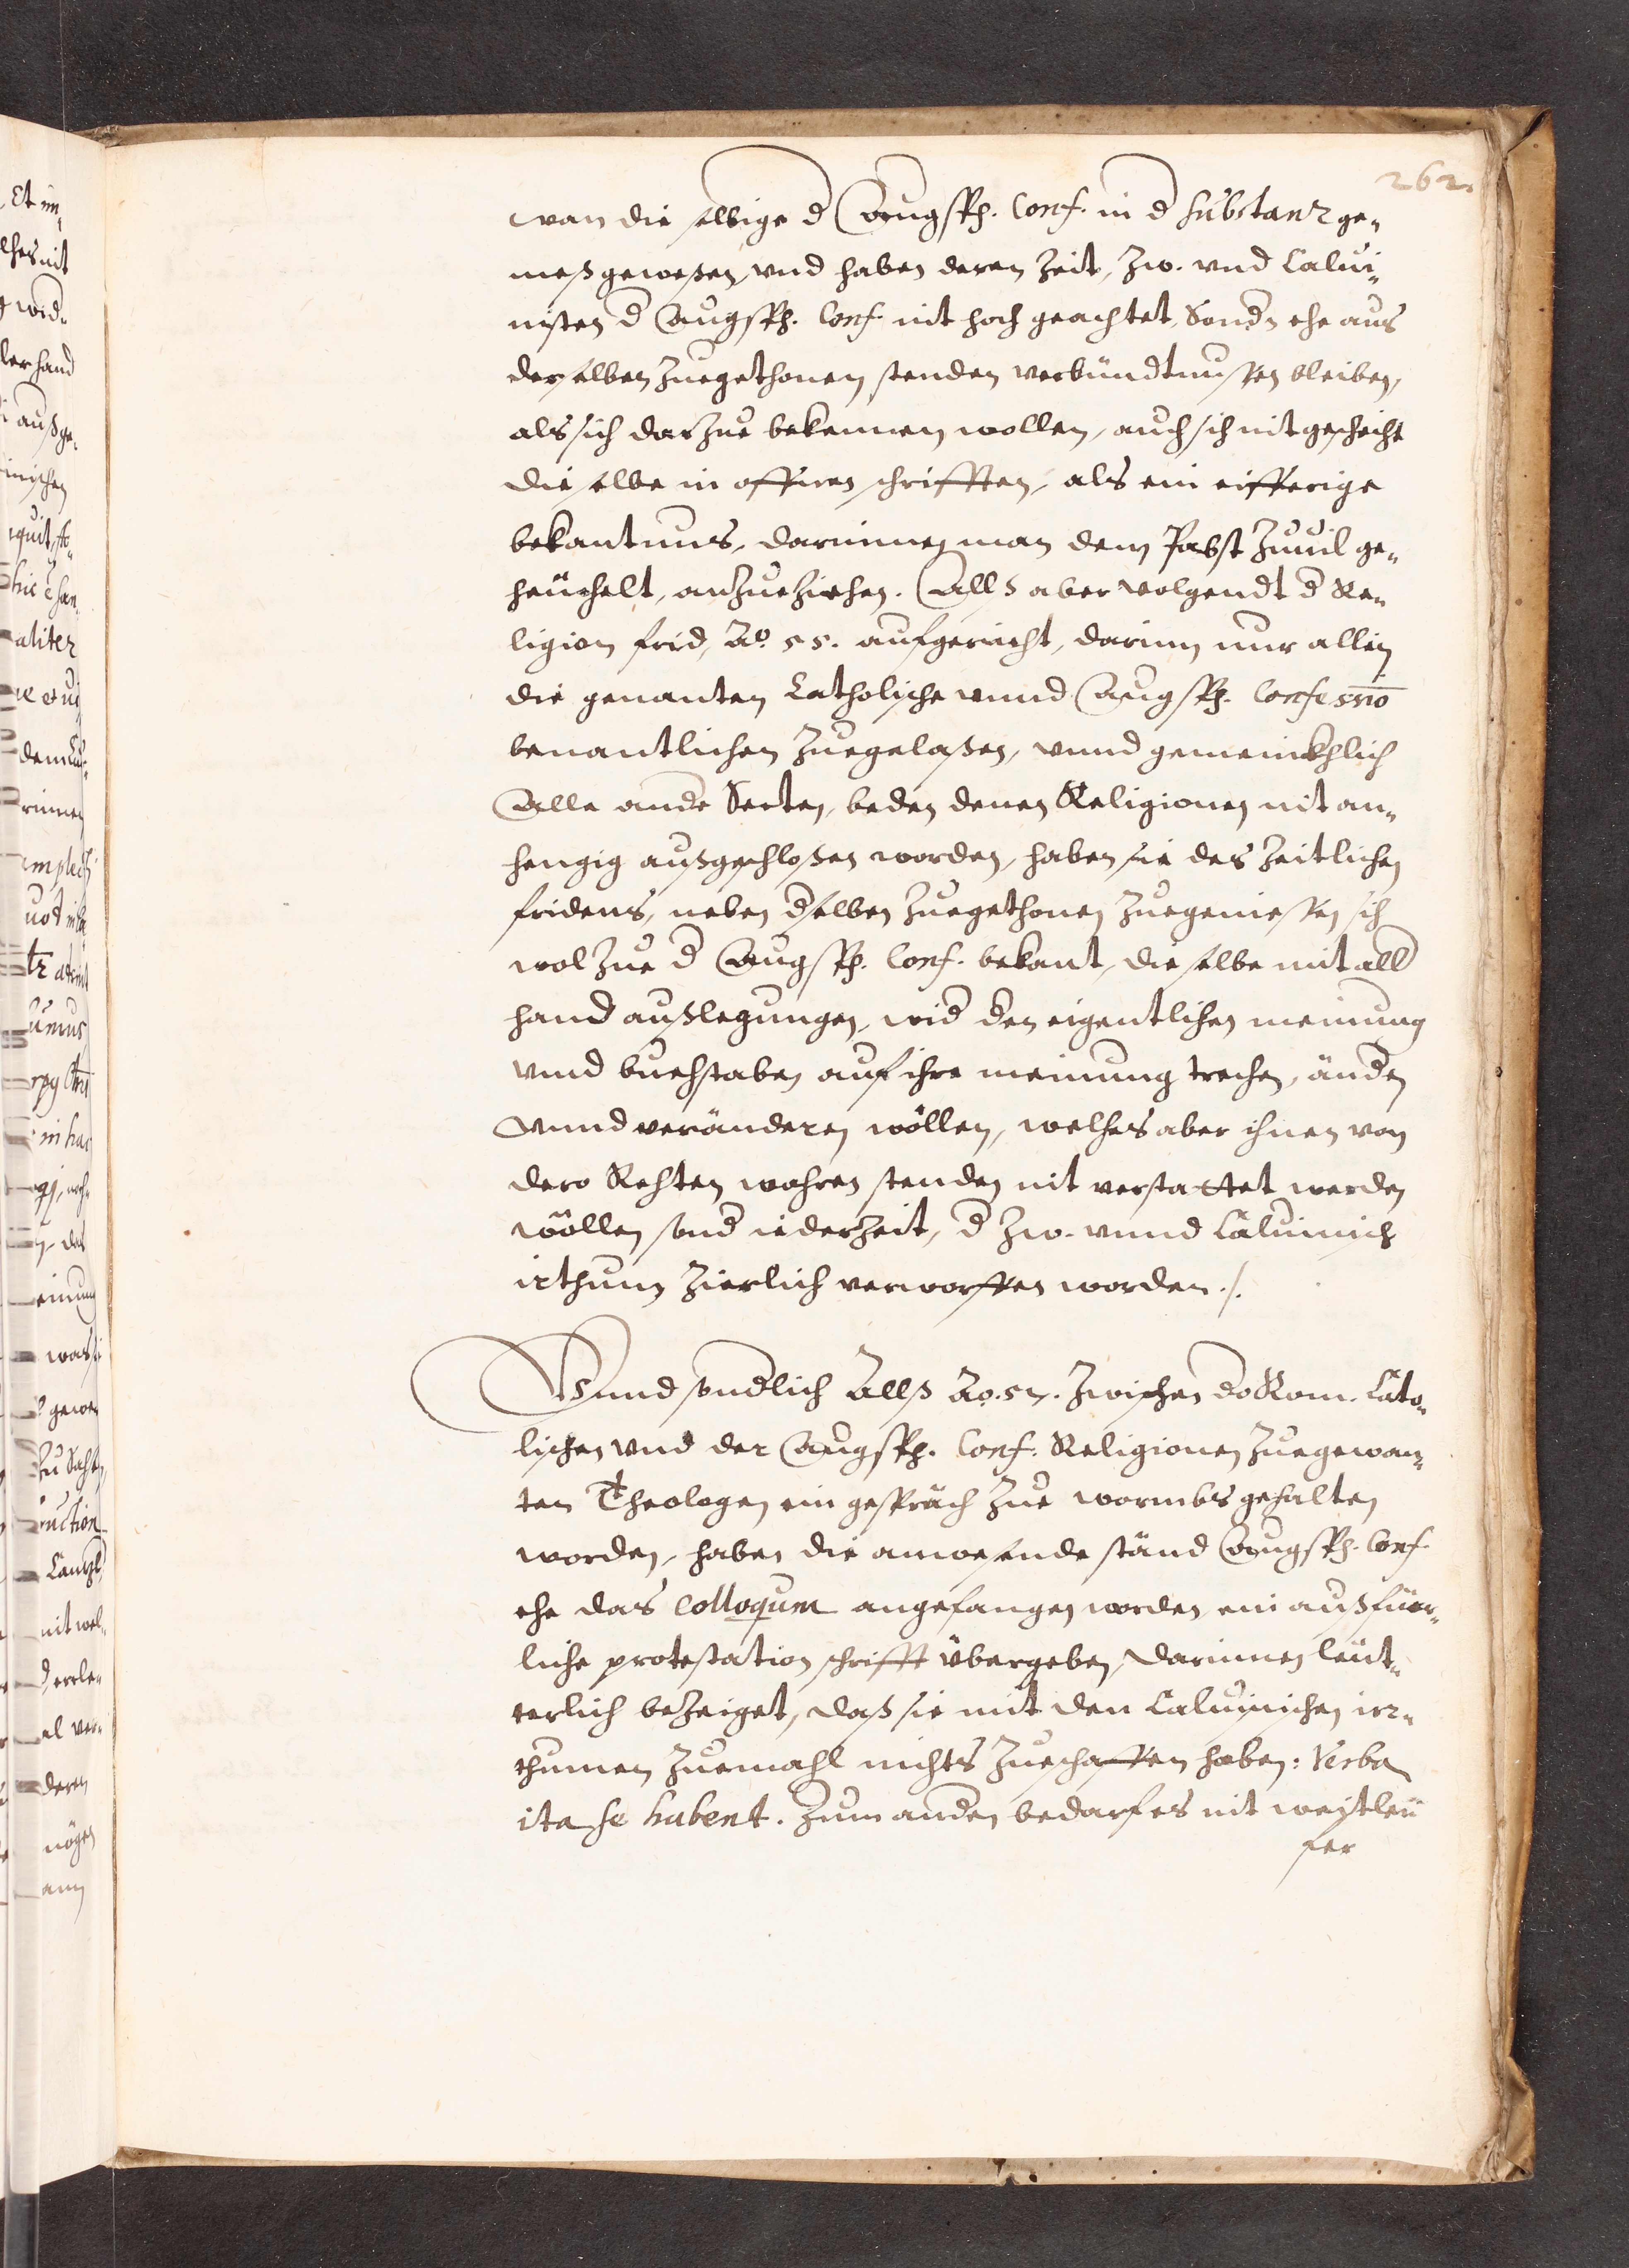 262.
wan die selbige d Augsp. Conf. in d substanz ge-
meß geweßen, vnd haben deren Zeit, Zw. vnd Calui-
nisten d Augsp. Conf. nit hoch geachtet, Sondn ehe aus
derselben zuegethonen stenden verbündtnussen bleiben,
als sich darzue bekennen wollen, auch sich nit gescheiht
dieselbe in offnen schrifften, als ein eifferige
bekantnus, darinnen man dem Pabst zuuil ge-
heüchelt, anzueziehen. Allß aber volgendt d Re-
ligion frid, Ao. 55. aufgericht, darinn nur allein
die genanten Catholische vnnd Augsp. Confessio
benantlichen zuegelaßen, vnnd gemeinkhlich
Alle andr Secten, beden denen Religionen nit an-
hengig außgeschloßen worden, haben sie des zeitlichen
fridens, neben dselben zuegethonen zuegeniessen sich
wol zue d Augsp. Conf. bekant, dieselbe mit alld
hand außlegungen, wid den eigentlichen meinung
vnnd buchstaben auf ihre meinung trechen, ändn
vnnd veränderen wöllen, welches aber ihnen von
dero Rechten wahren stenden nit verstattet werden
wöllen sond iederzeit, d Zw. vnnd Caluinisch
irthum zierlich verworffen worden ./.
Vnnd sondlich Allß Ao. 57. zwischen do Rom. Cato-
lischen vnd der Augsp. Conf. Religionen zuegewan-
ten Theologen ein gespräch zue wormbs gehalten
worden, haben die anwesende ständ Augsp. Conf.
ehe das Colloquium angefangen worden ein außfüer-
liche protestation schrifft übergeben, darinnen leüt-
terlich bezeiget, daß sie mit den Caluinischen irr-
thumen zuemahl nichts zueschaffen haben: Verba
ita se habent. Zum andn bedarf es nit weytleü
fer